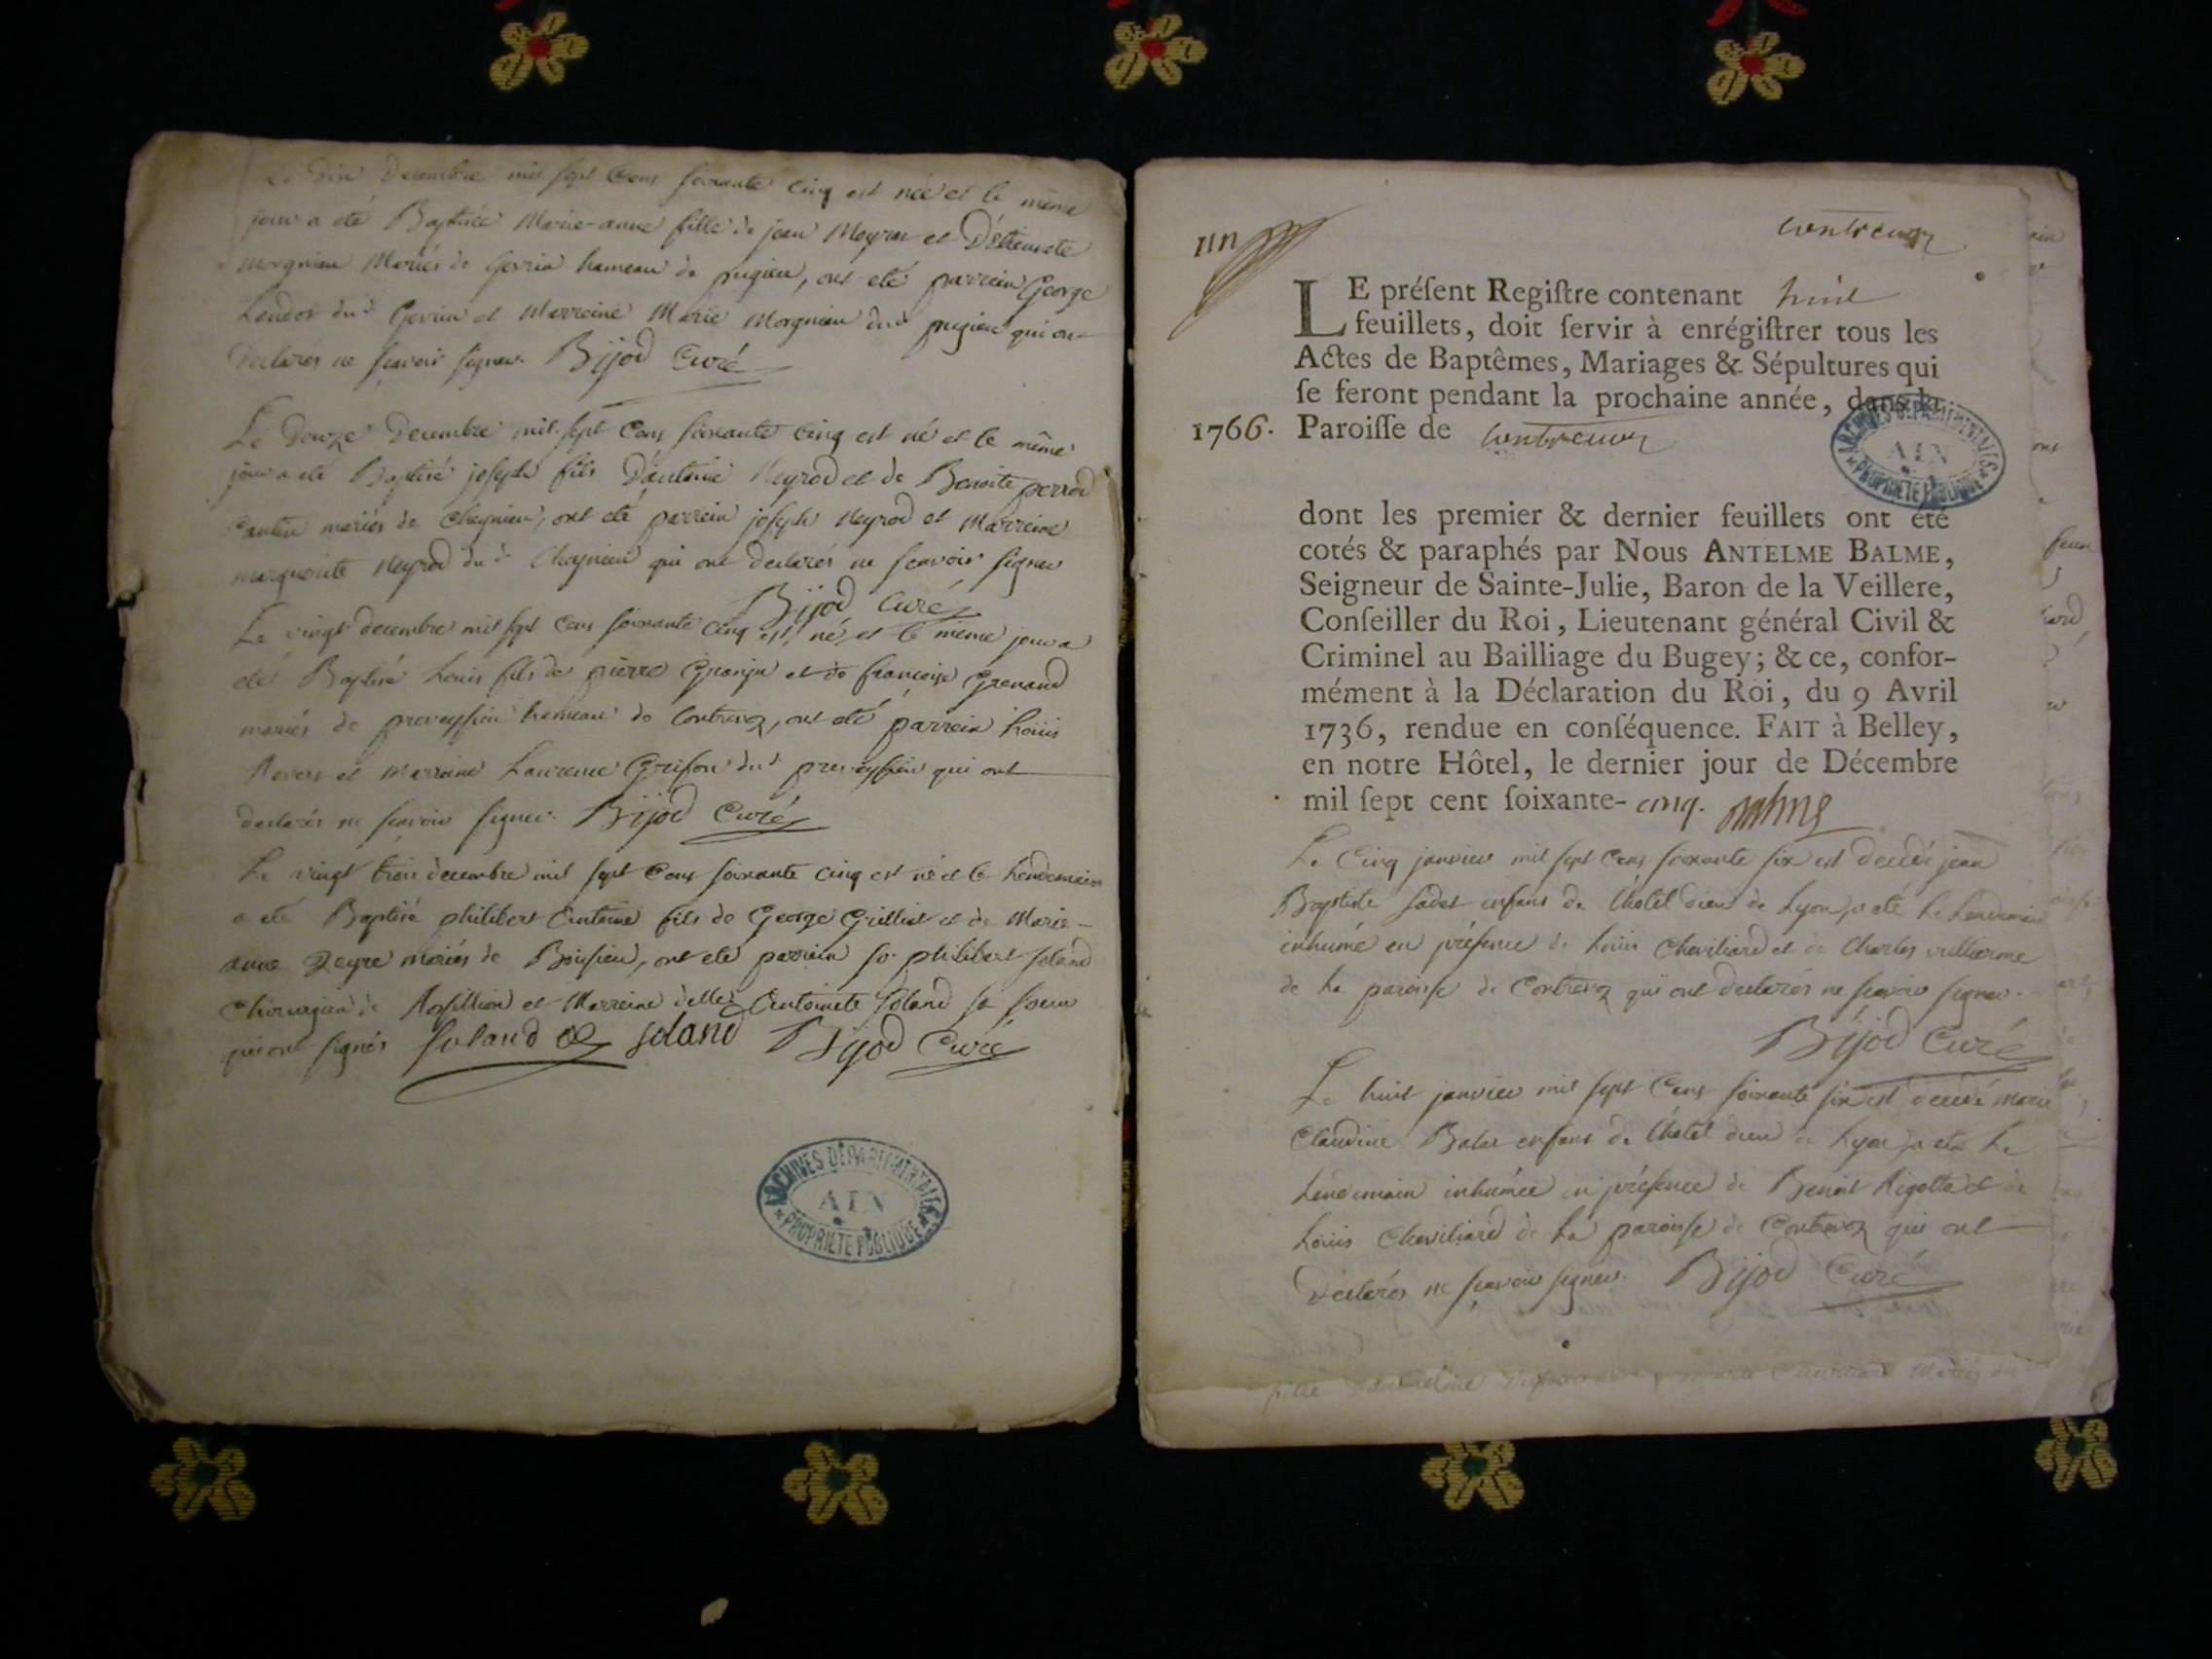 Le Dix Decembre mil sept Cens soixante Cinq est née et le même
jour a eté Baptisée Marie-anne fille de jean Meyrar et D'étiennete
Morgnieu Mariés de Gevrin hameau de pugieu, ont eté parrein George
du.d Gevrin et Marreine Marie Morgnieu du.d pugieu qui ont
Declarés ne sçavoir signer. Bijod Curé
Le Douze Decembre mil sept Cens soixante Cinq est né et le même
jour a eté Baptisé joseph fils D'antoine Neyrod et de Benoite perrod
mariés de Cheynieu, ont eté parrein joseph Neyrod et Marreine
marguerite Neyrod du.d Cheynieu qui ont declarés ne scavoir signer
Bijod Curé
Le vingt decembre mil sept Cens soixante Cinq est né et le même jour a
eté Baptisé Louis fils de pierre et de françoise Grenand
mariés de preveyssieu hameau de Contrevoz, ont eté parrein Louis
et marreine Laurence Grifon du.d preveyssieu qui ont
declarés ne scavoir signer. Bijod Curé
Le vingt trois decembre mil sept Cens soixante Cinq est né et le Lendemain
a eté Baptisé philibert Antoine fils de George Grilliet et de Marie-
anne mariés de ont eté parrein sr. philibert Soland
Chirurgien de Rossillion et Marreine delle Antoinete Soland sa soeur
qui ont signés Soland Soland Bijod Curé
ARCHIVES DÉPARTEMENTALES
AIN
PROPRIÉTÉ PUBLIQUE
un
Contrevoz
LE préſent Regiſtre contenant huit
feuillets, doit ſervir à enrégiſtrer tous les
Actes de Baptêmes, Mariages & Sépultures qui
ſe feront pendant la prochaine année, dans la
1766. Paroiſſe de Contrevoz
ARCHIVES DÉPARTEMENTALES
AIN
PROPRIÉTÉ PUBLIQUE
dont les premier & dernier feuillets ont été
cotés & paraphés par Nous ANTELME BALME,
Seigneur de Sainte-Julie, Baron de la Veillere,
Conſeiller du Roi, Lieutenant général Civil &
Criminel au Bailliage du Bugey; & ce, confor-
mément à la Déclaration du Roi, du 9 Avril
1736, rendue en conſéquence. FAIT à Belley,
en notre Hôtel, le dernier jour de Décembre
mil ſept cent ſoixante- cinq. Balme
Le Cinq janvier mil sept Cens soixante six est decedé jean
Baptiste enfant de l'hôtel dieu de Lyon, a eté le Lendemain
inhumé en présence de Louis Chevilliard et de Charles vullierme
de La paroisse de Contrevoz qui ont declarés ne sçavoir signer.
Bijod Curé
Le huit janvier mil sept Cens soixante six est decedé marie
Claudine enfant de l'hôtel dieu de Lyon, a eté Le
Lendemain inhumée en présence de Benoit Rigollet et de
Louis Chevilliard de La paroisse de Contrevoz qui ont
Declarés ne scavoir signer. Bijod Curé